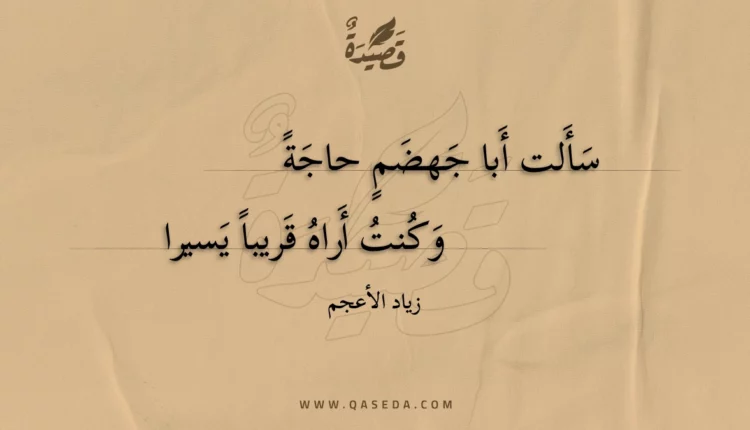 قَصِيْدَةٌ
سَأَلت أَبا جَهضَمٍ حاجَةً
وَكُنتُ أَراهُ قَريباً يَسيرا
زياد الأعجم
WWW.QASEDA.COM